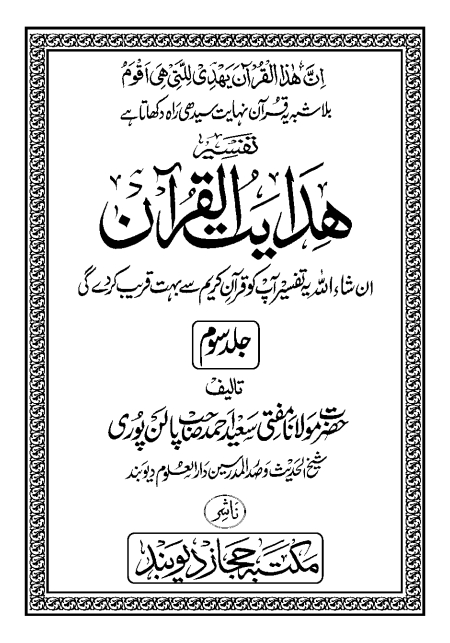 اِنَّ هٰذَا الْقُرْآنَ يَهْدِىْ لِلَّتِىْ هِىَ اَقْوَمُ
بلاشبہ یہ قرآن نہایت سیدھی راہ دکھاتا ہے
تفسیر
ہدایت القرآن
ان شاء اللہ یہ تفسیر آپ کو قرآنِ کریم سے بہت قریب کردے گی
جلد سوم
تالیف
حضرت مولانا مفتی سعید احمد صاحب پالن پوری
شیخ الحدیث وصدر المدرسین دارالعلوم دیوبند
ناشر
مکتبہ حجاز دیوبند